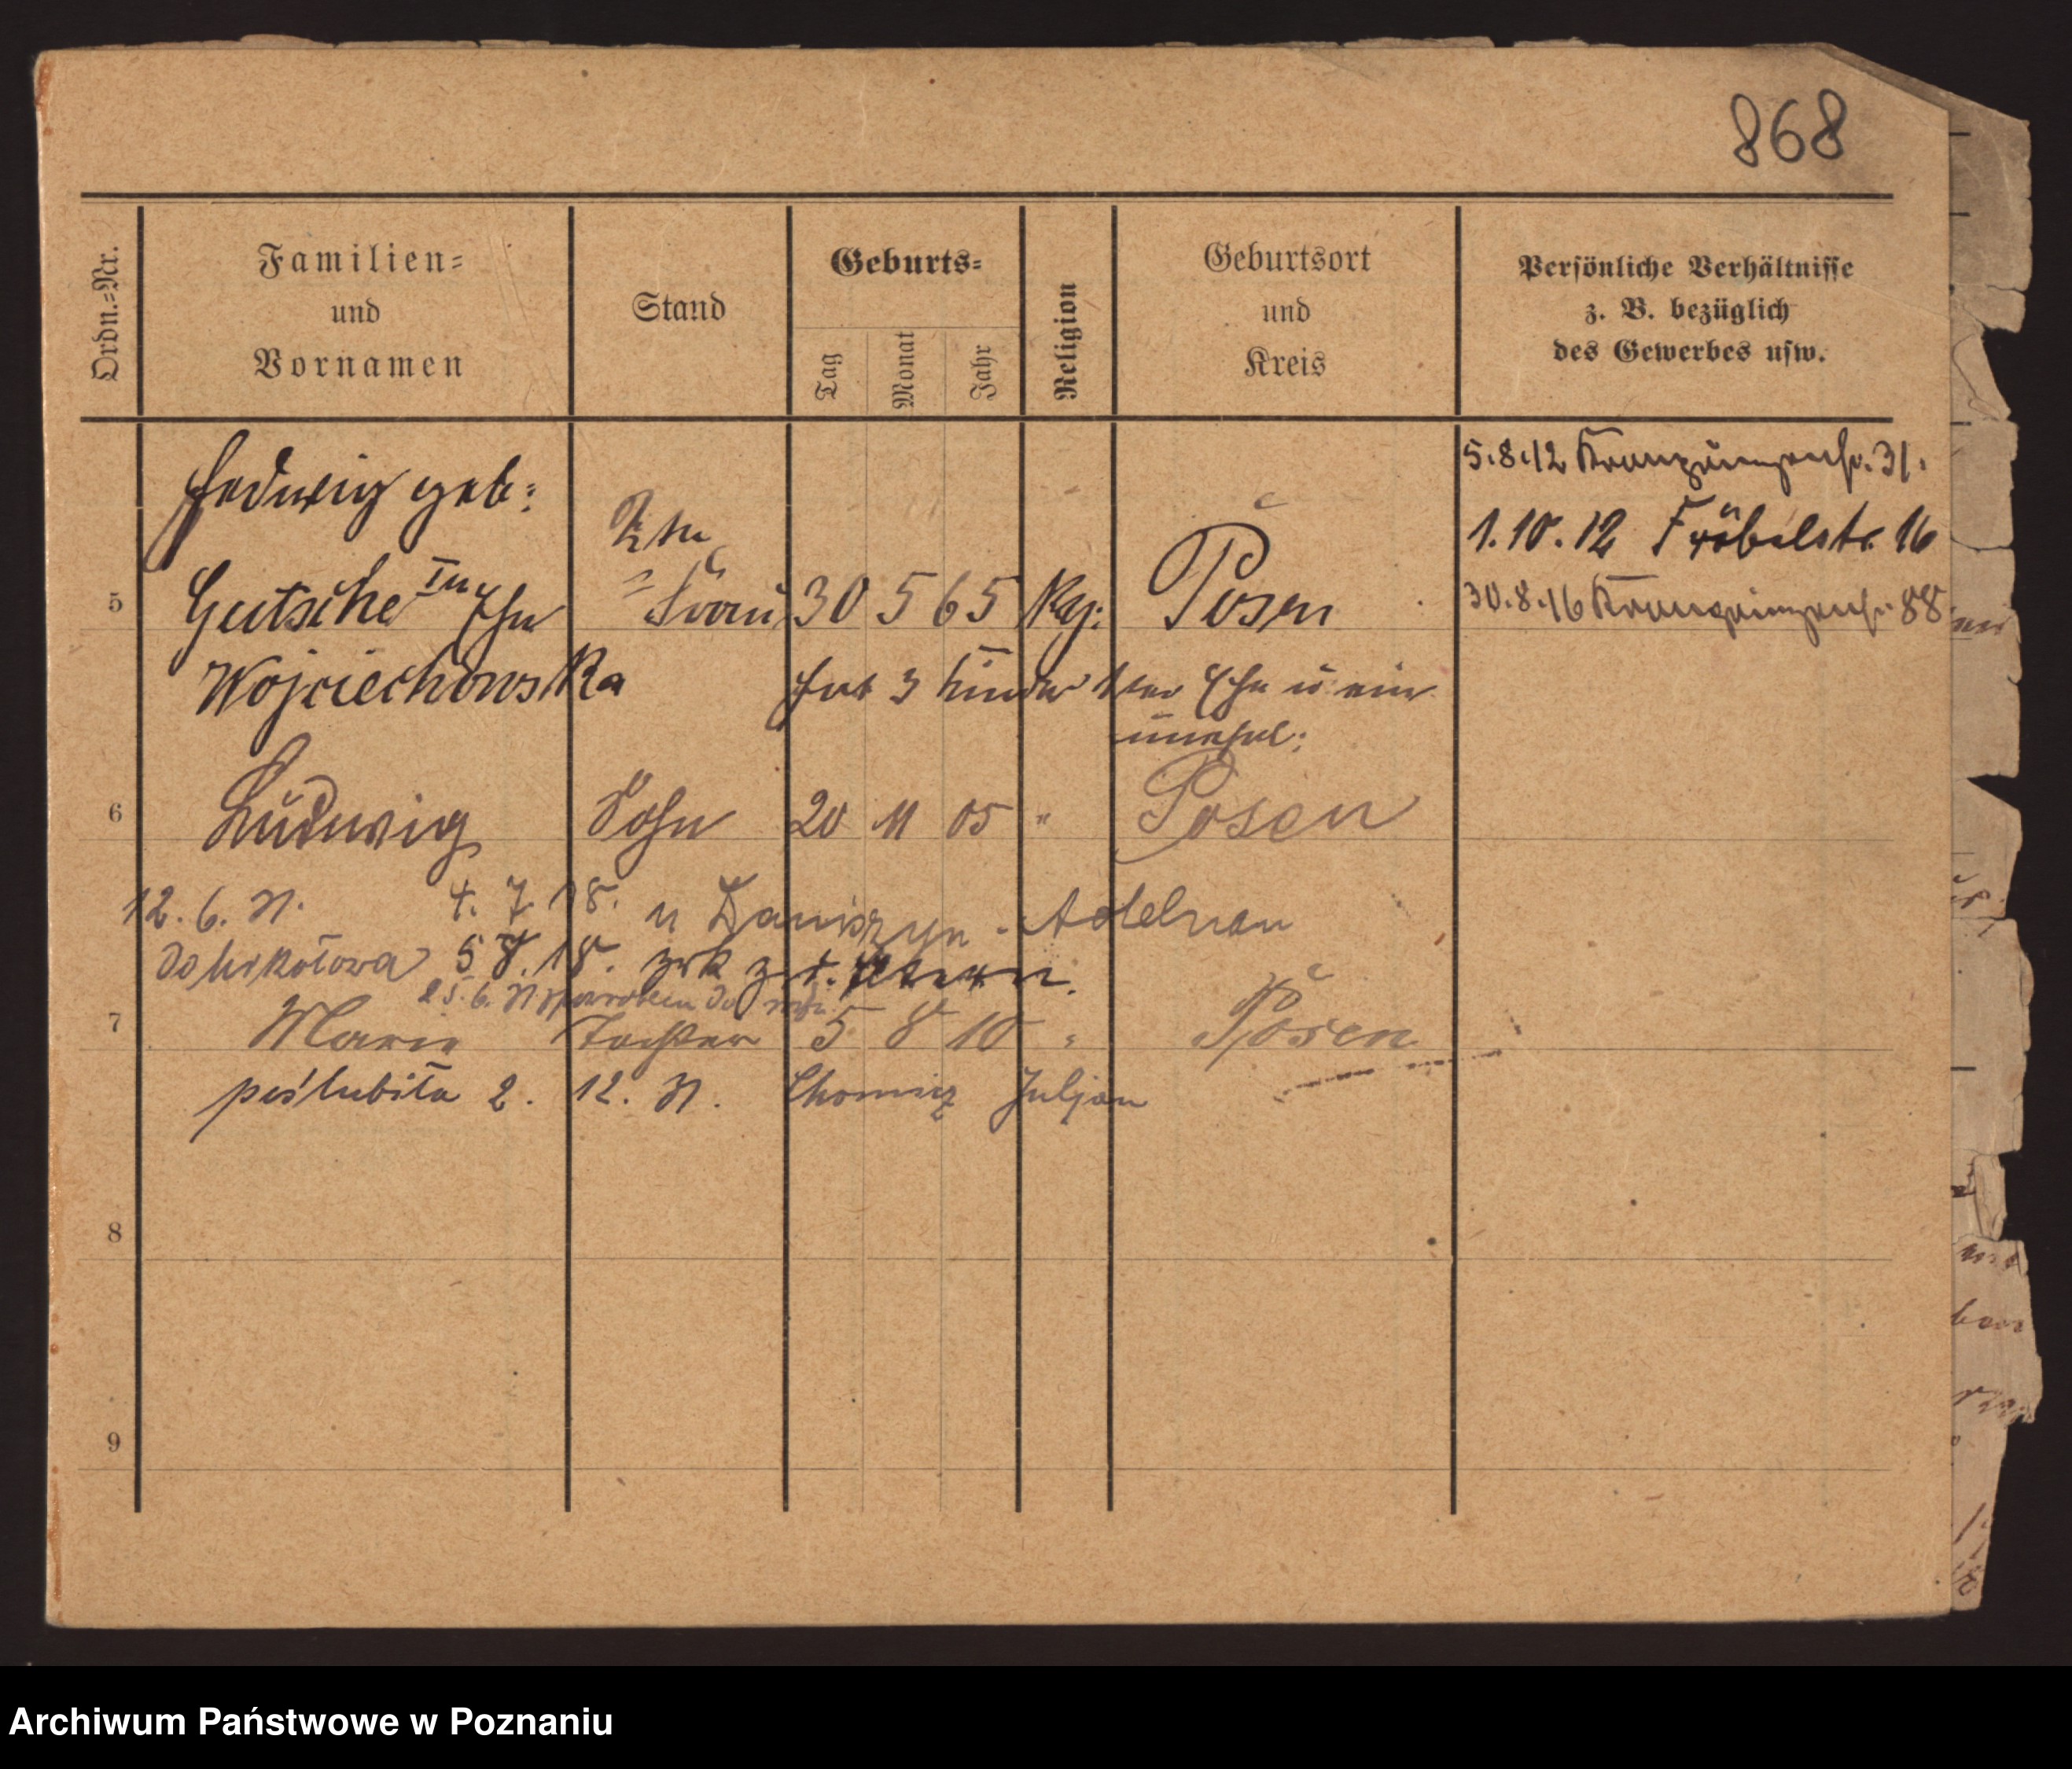 868
Ordn.=Nr.
Familien=
und
Vornamen
Stand
Geburts=
Tag
Monat
Jahr
Religion
Geburtsort
und
Kreis
Persönliche Verhältnisse
z. B. bezüglich
des Gewerbes usw.
5.8.12 Kronprinzenstr. 31.
1.10.12 Fröbelstr. 16
30.8.16 Kronprinzenstr. 88
Hedwig geb:
5 Gutsche Ehe Frau 30 5 65 Posen
Wojciechowska hat 3 Kinder 1ter Ehe u ein
unehel:
6 Ludwig Sohn 20 11 05 " Posen
12. 6. 4. 7. 18. n Daniszyn - Adelnau
do 5 8. 18. zrk z
25. 6. do
7 Marie Tochter 5 8 10 " Posen
poślubiła 2. 12. 31. Juljan
8
9
Archiwum Państwowe w Poznaniu